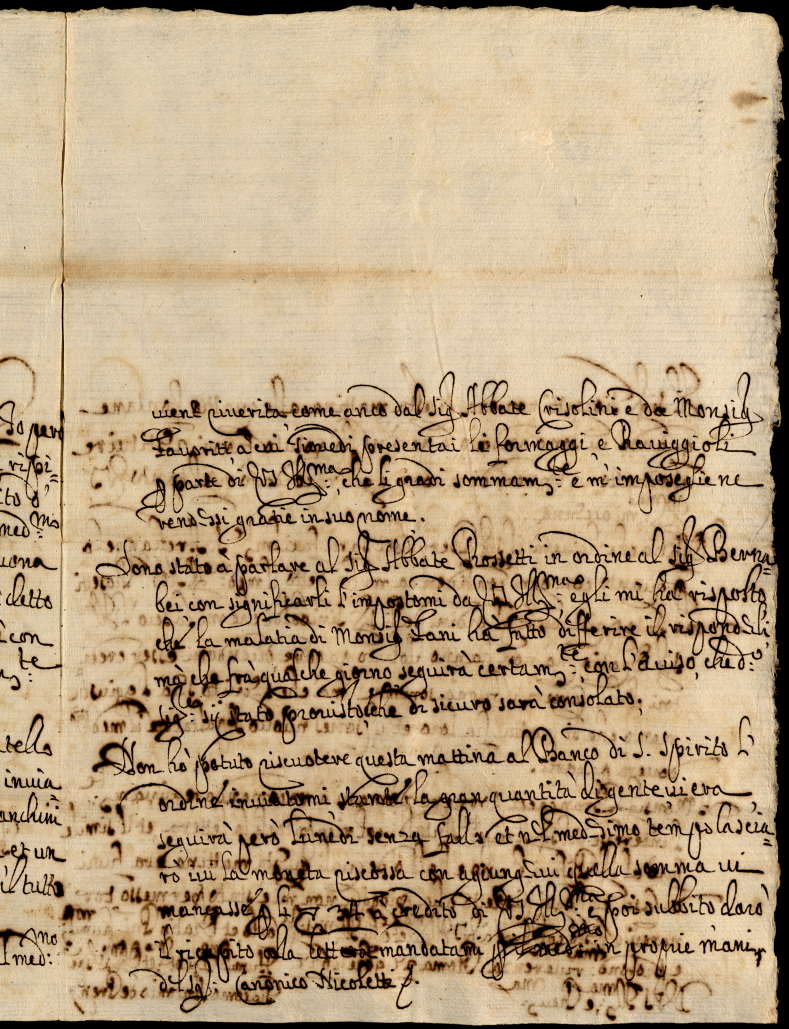 Io però
rispi-
ito d'
med.mo
uona
detto
con
te
tello
inuia
anchini
et un
il tutto
med:mo
uien riuerita come anco dal Sig.r Abbate Crisolini e da Monsig.r
a cui Giouedi presentai li formaggi e Rauiggioli
p parte di VS Ill.ma, che li gradì sommam.te e m'impose gliene
rendessi gratie in suo nome.
Sono stato à parlare al Sig.r Abbate Rossetti in ordine al Sig.r Berna-
bei con significarli l'impostomi da VS Ill.ma egli mi hà risposto
che la malatia di Monsig.r Fani hà fatto differire il risponderli
mà che frà qualche giorno seguirà certam.te con l'auiso, che d.o
Sig.re sij stato prouisto, che di sicuro sarà consolato.
Non hò potuto riscuotere questa mattina al Banco di S. Spirito l'
ordine inuiatomi stante la gran quantità di gente ui era
seguirà però Lunedi senza fallo et nel medesimo tempo lascia-
rò iui la moneta riscossa con agiungerui quella somma ui
mancasse p li a credito di VS Ill.ma e poi subbito darò
il ricapito alla lettera mandatami in proprie mani
del Sig.r Canonico Nicoletti.